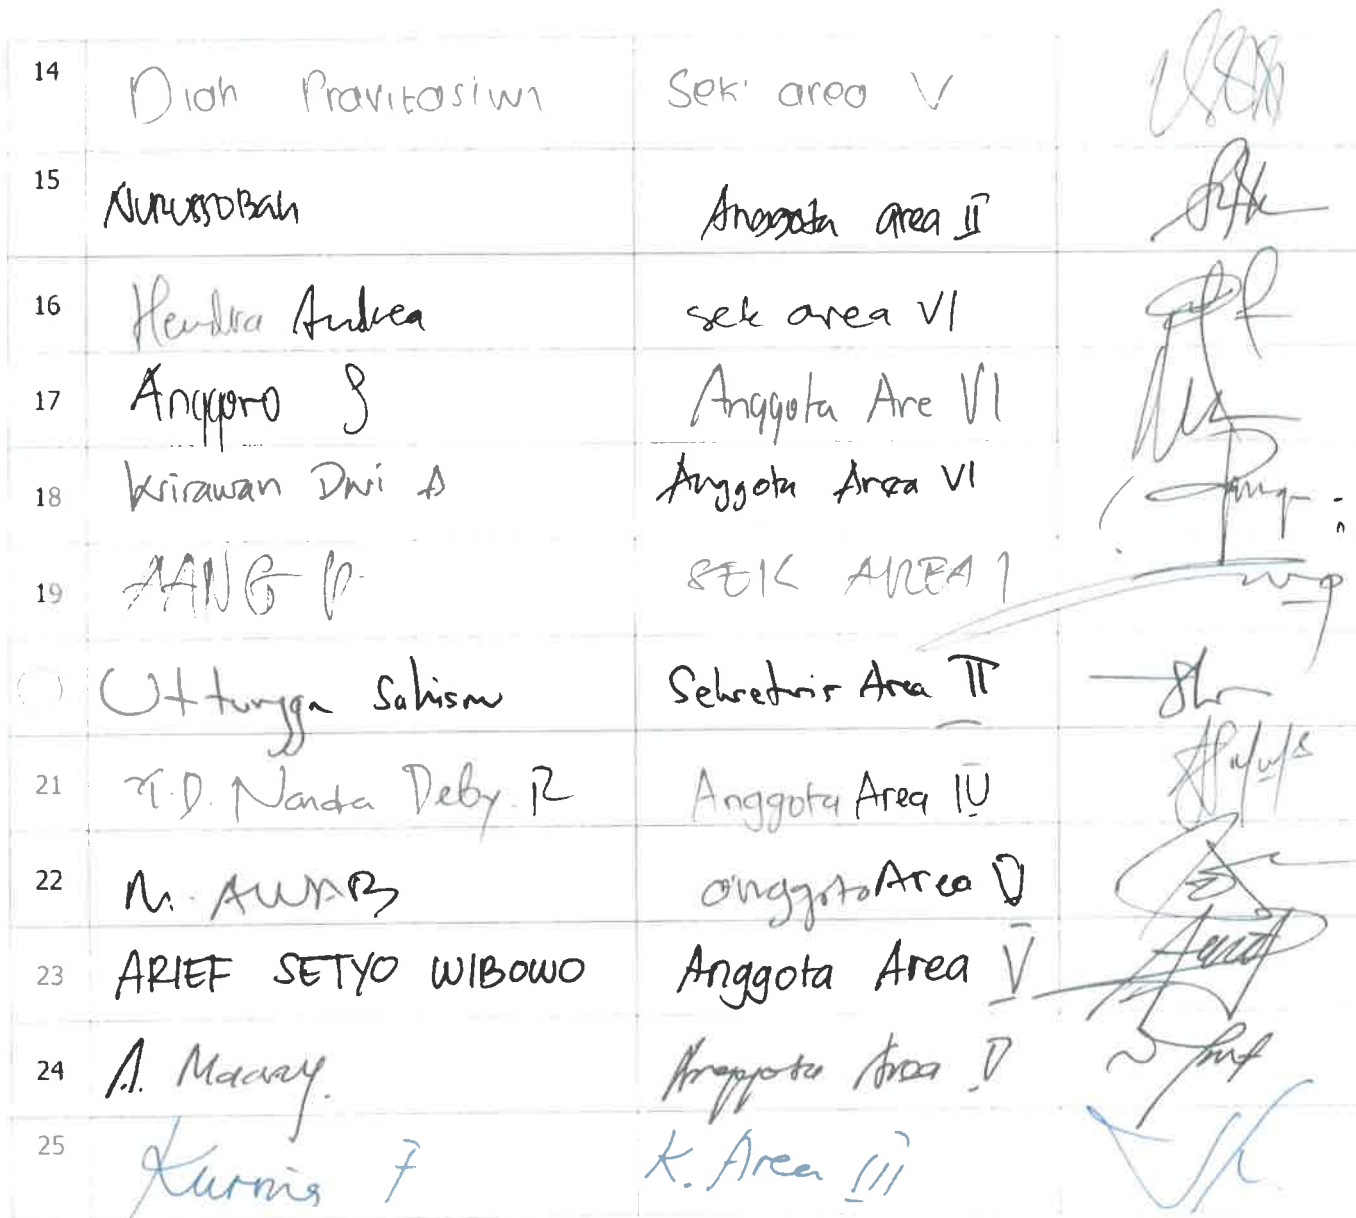 14 Diah Pravitasiwi Sek. area V
15 Nurussobah Anggota area II
16 Hendra Andrea sek area VI
17 Anggoro S Anggota Are VI
18 Krirawan Dwi A Anggota Area VI
19 AANG P. SEK AREA I
Uttungga Sekretaris Area II
21 T.D. Nanda Deby. R Anggota Area IV
22 M. AWAB anggota Area V
23 ARIEF SETYO WIBOWO Anggota Area V
24 A. Anggota Area V
25 Kurnia F K. Area III